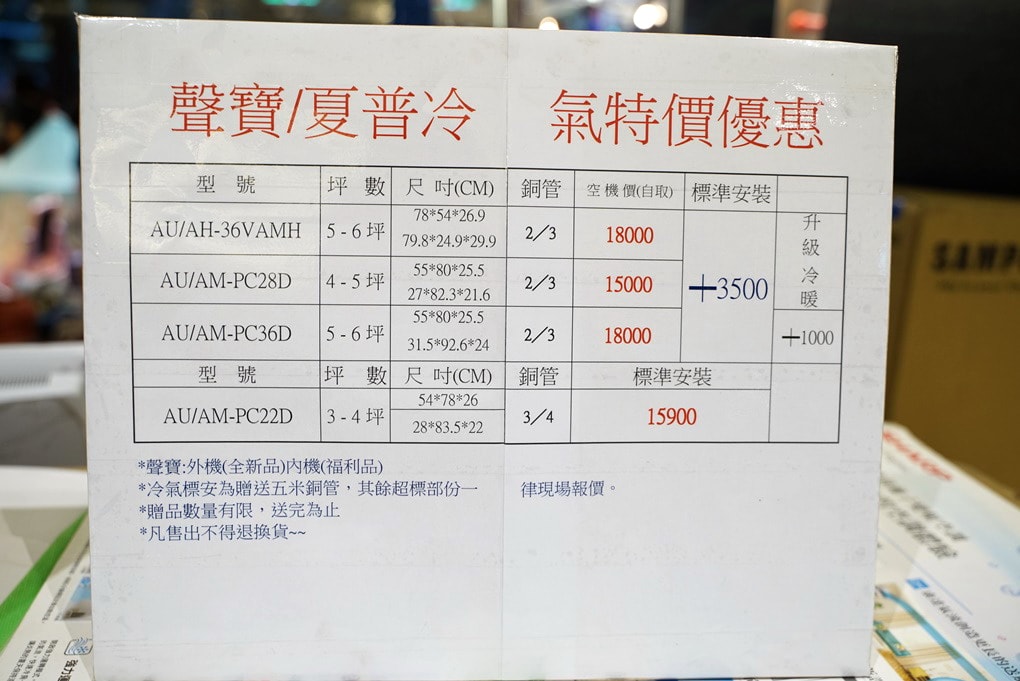 聲寶/夏普冷 氣特價優惠
型 號 坪 數 尺 吋(CM) 銅管 空機價(自取) 標準安裝
AU/AH-36VAMH 5-6坪 78*54*26.9 79.8*24.9*29.9 2/3 18000 +3500 升級冷暖
AU/AM-PC28D 4-5坪 55*80*25.5 27*82.3*21.6 2/3 15000
AU/AM-PC36D 5-6坪 55*80*25.5 31.5*92.6*24 2/3 18000 +1000
型 號 坪 數 尺 吋(CM) 銅管 標準安裝
AU/AM-PC22D 3-4坪 54*78*26 28*83.5*22 3/4 15900
*聲寶:外機(全新品)內機(福利品)
*冷氣標安為贈送五米銅管，其餘超標部份一 律現場報價。
*贈品數量有限，送完為止
*凡售出不得退換貨~~